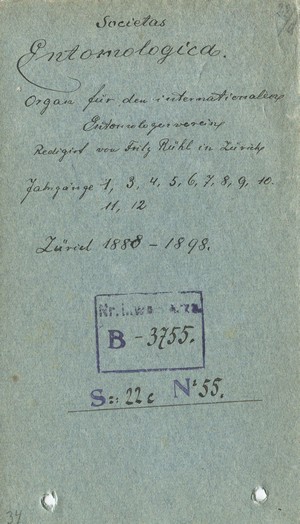 Societas
Entomologica.
Organ für den internationalen
Entomologenverein
Redigirt von Fritz Rühl in Zürich
Jahrgänge 1, 3, 4, 5, 6, 7, 8, 9, 10.
11, 12
Zürich 1888 – 1898.
B – 3755.
S: 22c № 55.
34